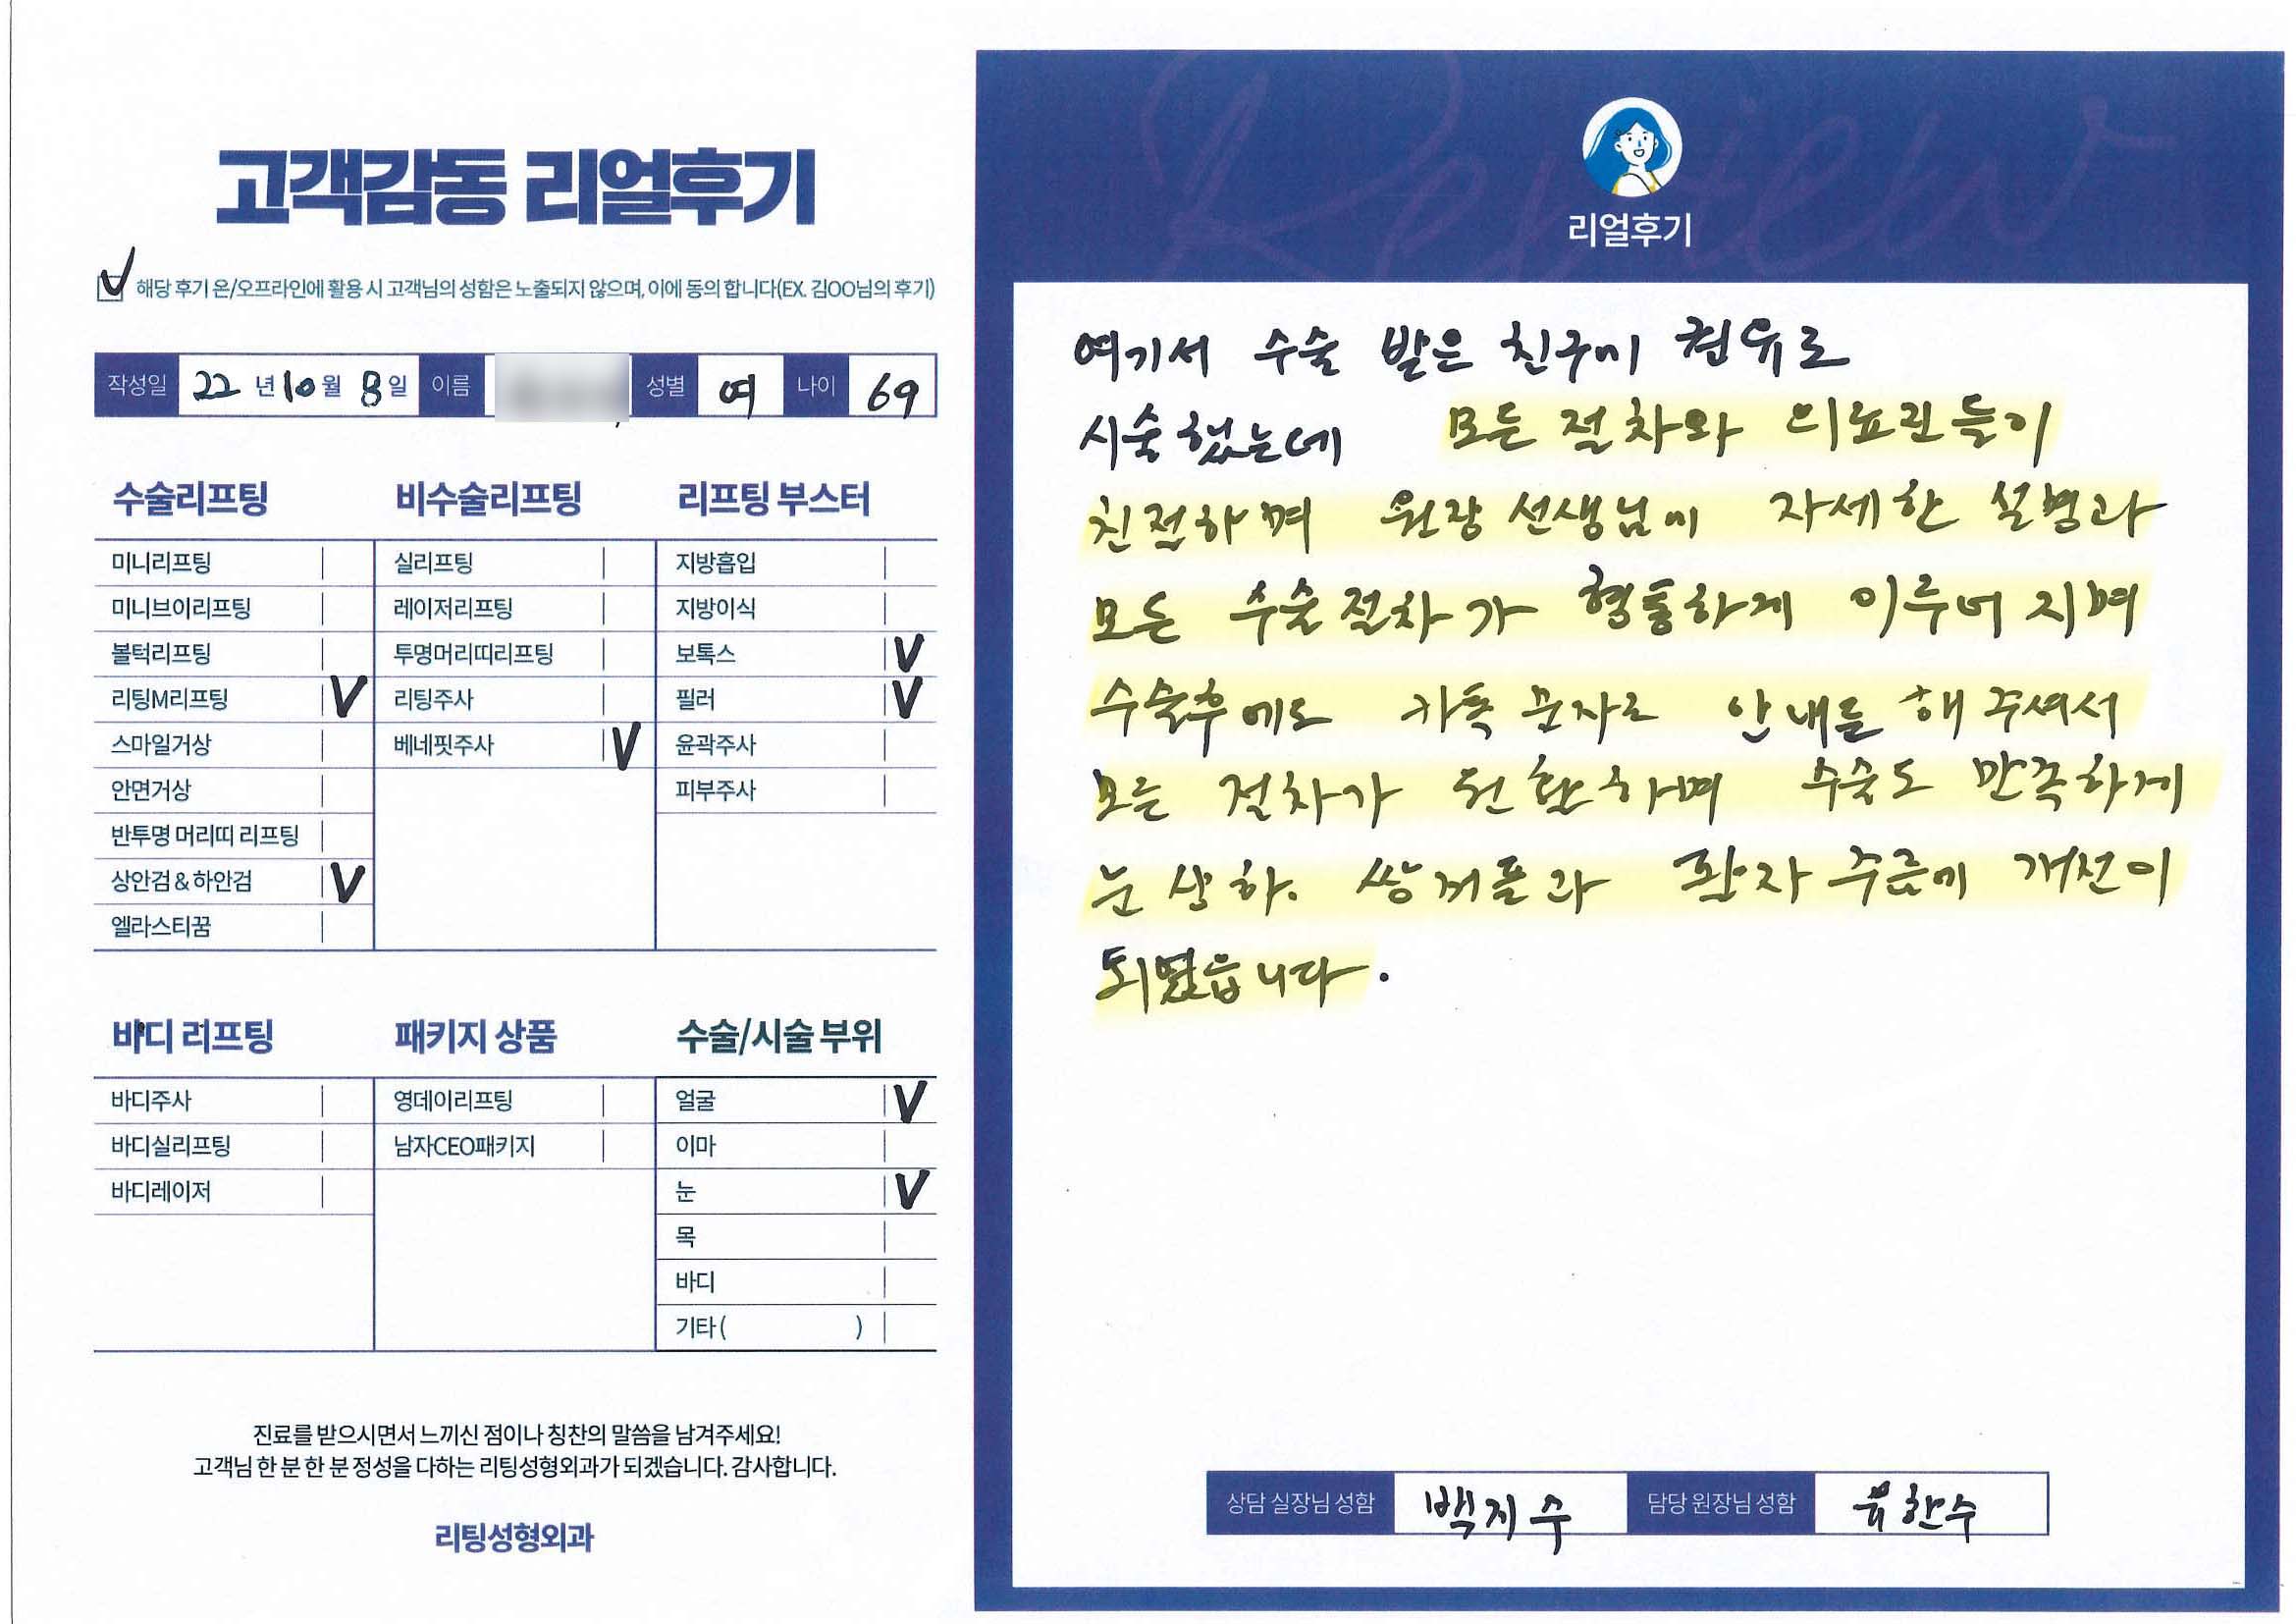 고객감동 리얼후기
해당 후기 온/오프라인에 활용 시 고객님의 성함은 노출되지 않으며, 이에 동의 합니다(EX. 김OO님의 후기)
작성일 22 년 10 월 8 일 이름 성별 여 나이 69
수술리프팅
미니리프팅
미니브이리프팅
볼턱리프팅
리팅M리프팅 V
스마일거상
안면거상
반투명 머리띠 리프팅
상안검 & 하안검 V
엘라스티꿈
비수술리프팅
실리프팅
레이저리프팅
투명머리띠리프팅
리팅주사
베네핏주사 V
리프팅 부스터
지방흡입
지방이식
보톡스 V
필러 V
윤곽주사
피부주사
바디 리프팅
바디주사
바디실리프팅
바디레이저
패키지 상품
영데이리프팅
남자CEO패키지
수술/시술 부위
얼굴 V
이마
눈 V
목
바디
기타 ( )
진료를 받으시면서 느끼신 점이나 칭찬의 말씀을 남겨주세요!
고객님 한 분 한 분 정성을 다하는 리팅성형외과가 되겠습니다. 감사합니다.
리팅성형외과
Review
리얼후기
여기서 수술 받은 친구의 권유로
시술했는데 모든 절차와 의료진들이
친절하며 원장 선생님의 자세한 설명과
모든 수술절차가 형통하게 이루어 지며
수술후에도 카톡 문자로 안내를 해 주셔서
모든 절차가 원활하며 수술도 만족하게
눈 상하. 쌍꺼풀과 팔자 주름에 개선이
되었습니다.
상담 실장님 성함 백지수 담당 원장님 성함 유한수